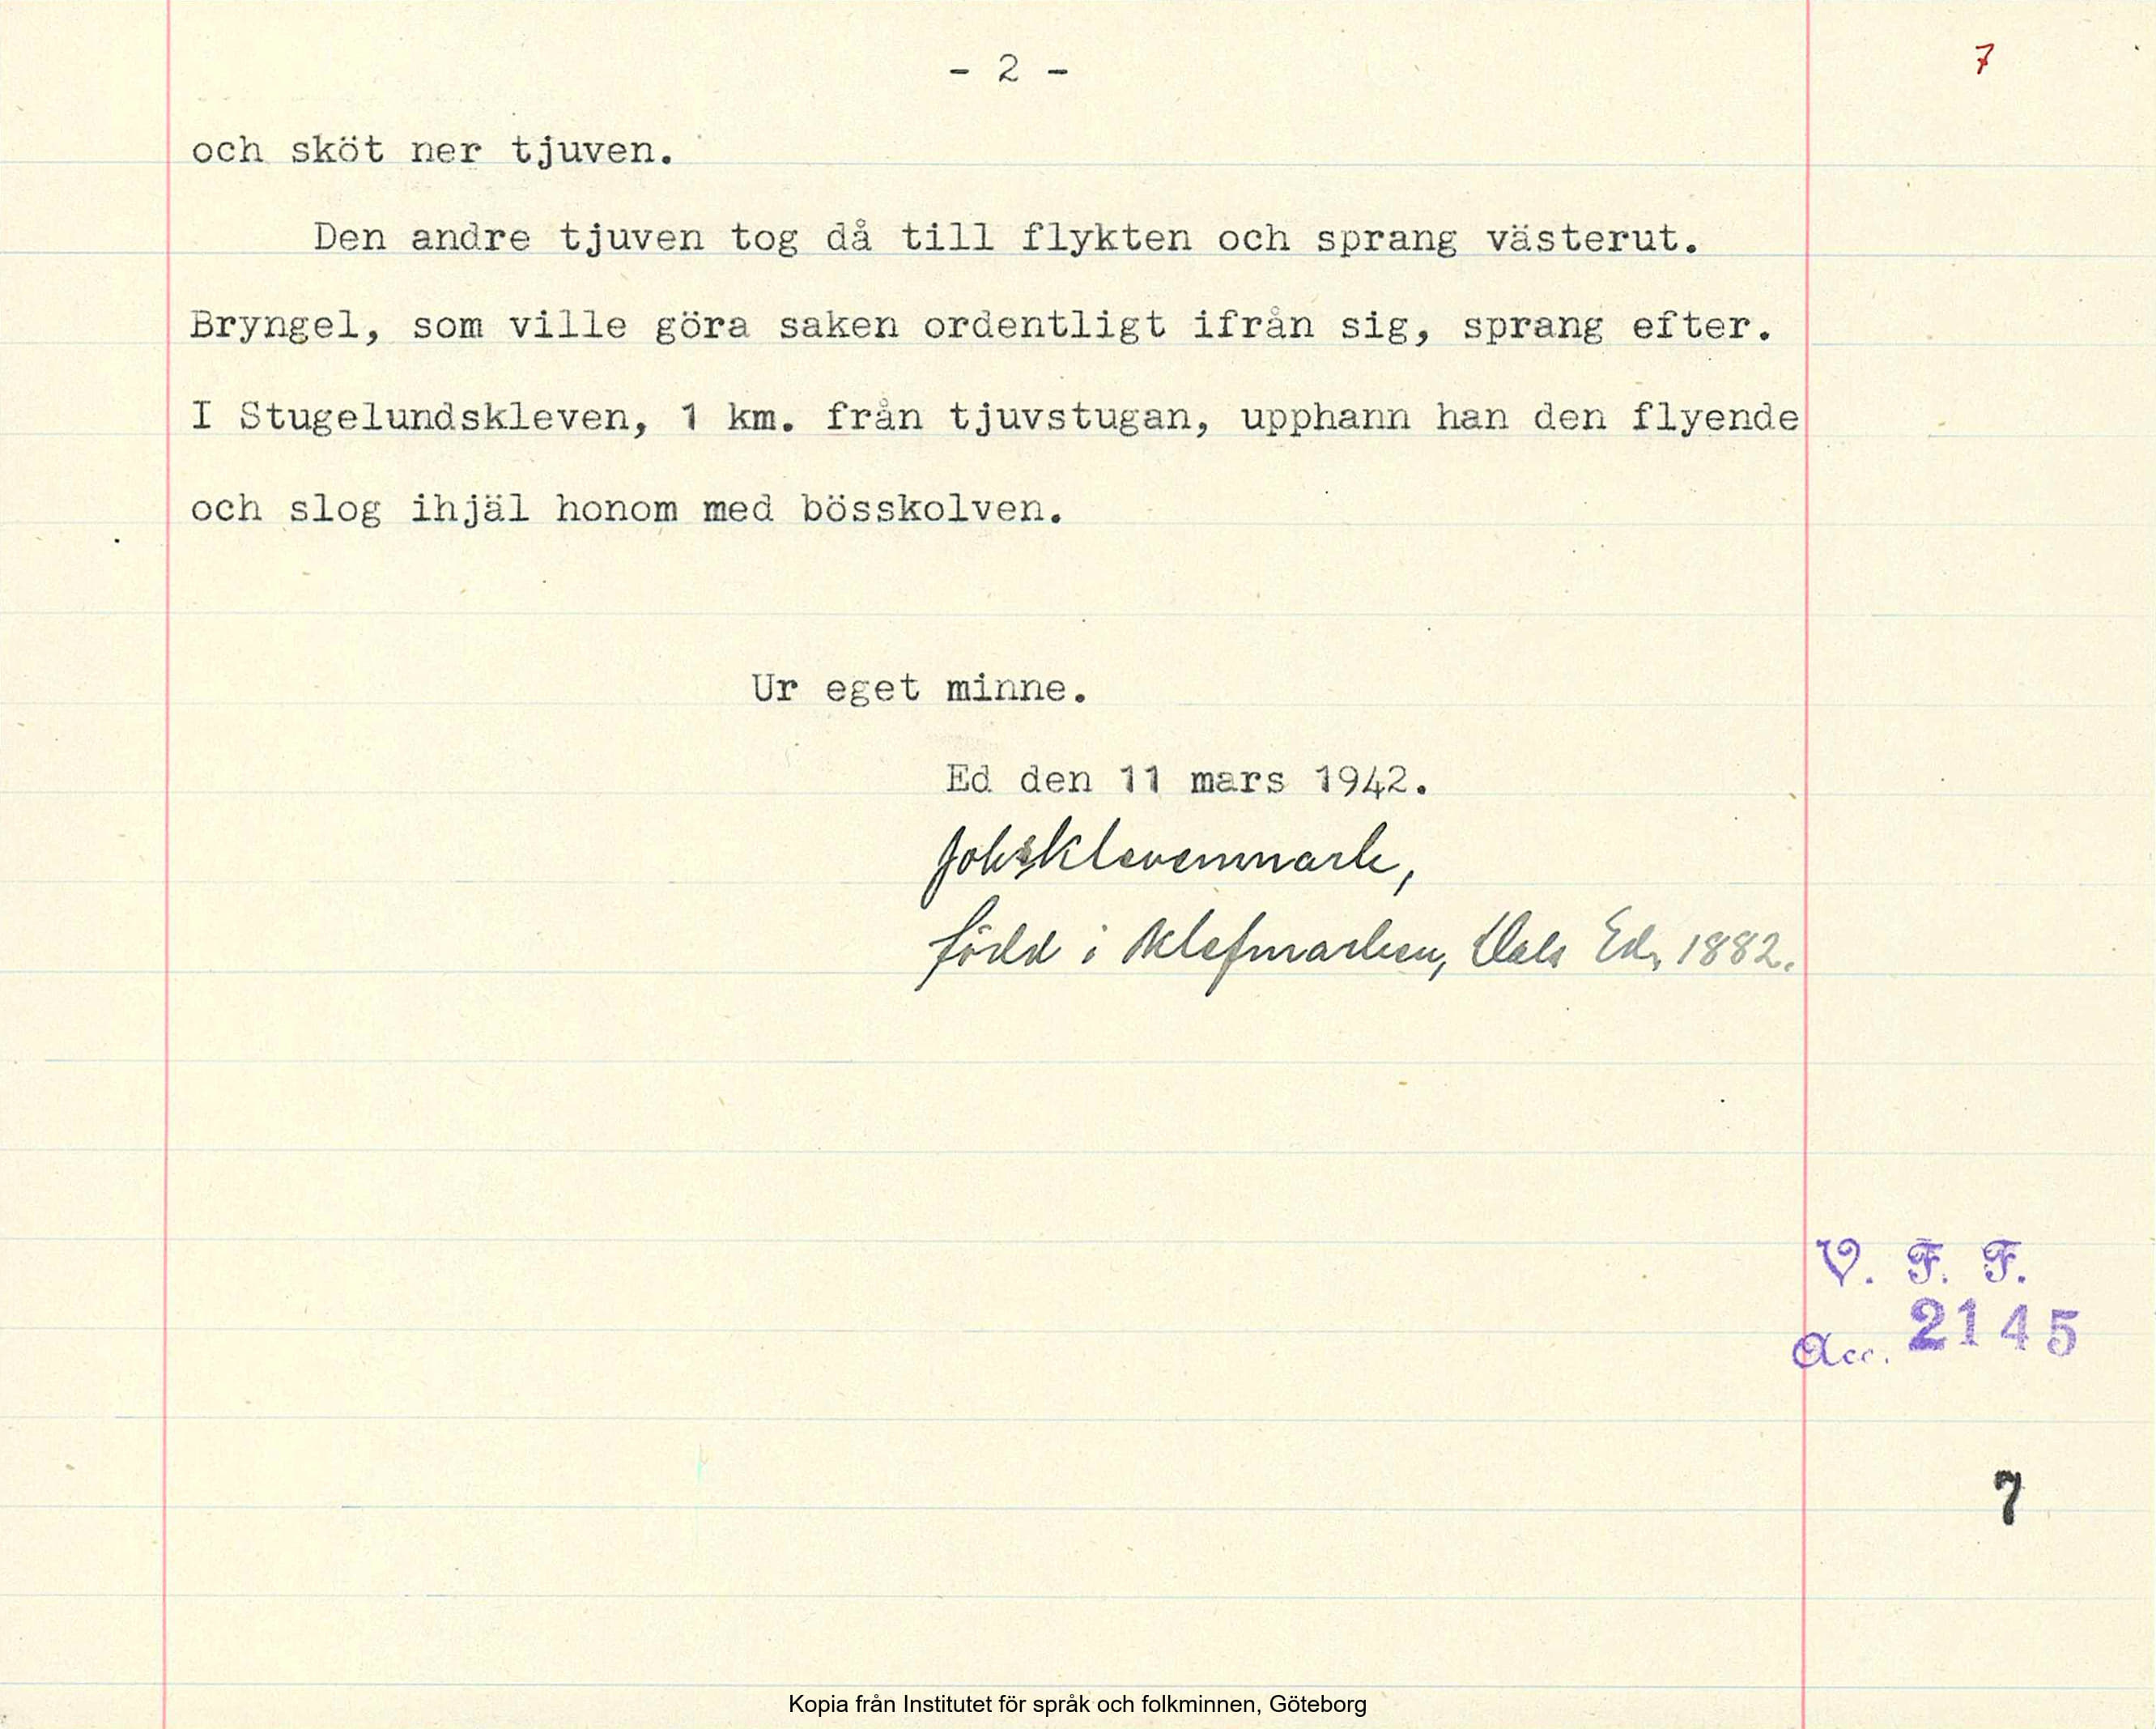 - 2 -
7
och sköt ner tjuven.
Den andre tjuven tog då till flykten och sprang västerut.
Bryngel, som ville göra saken ordentligt ifrån sig, sprang efter.
I Stugelundskleven, 1 km. från tjuvstugan, upphann han den flyende
och slog ihjäl honom med bösskolven.
Ur eget minne.
Ed den 11 mars 1942.
Johs Klevenmark,
född i Klefmarken, Dals Ed, 1882.
V. F. F.
Acc. 2145
7
Kopia från Institutet för språk och folkminnen, Göteborg